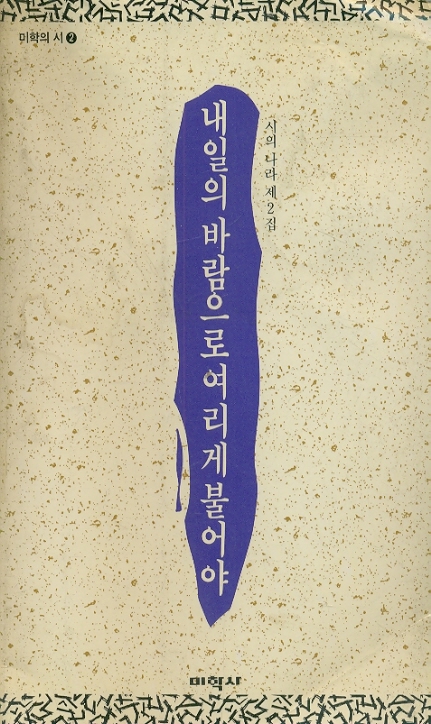 미학의 시 ❷
시의 나라 제2집
내일의 바람으로 여리게 불어야
미학사